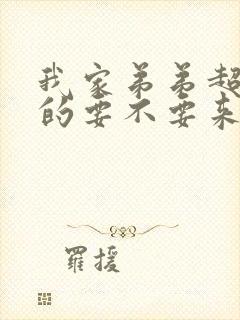 我家弟弟超
的要不要来
羅援